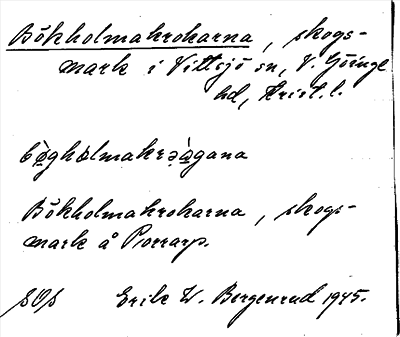 Bökholmakrokarna, skogs-
mark i Vittsjö sn, V. Göinge
hd, Krist. l.
bøghɷlmakrəågana
Bökholmakrokarna, skogs-
mark å Porrarp.
SOS Erik W. Bergenrud 1945.